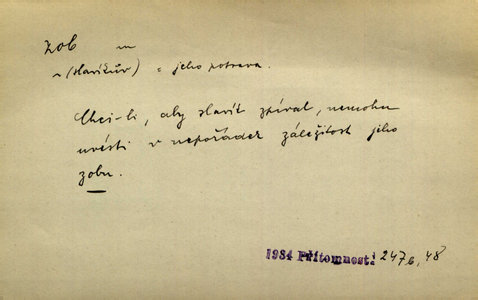 zob m
~ (slavíkův) = jeho potrava.
Chci-li, aby slavík zpíval, nemohu
uvésti v nepořádek záležitost jeho
zobu.
1934 Přítomnost 247b, 48